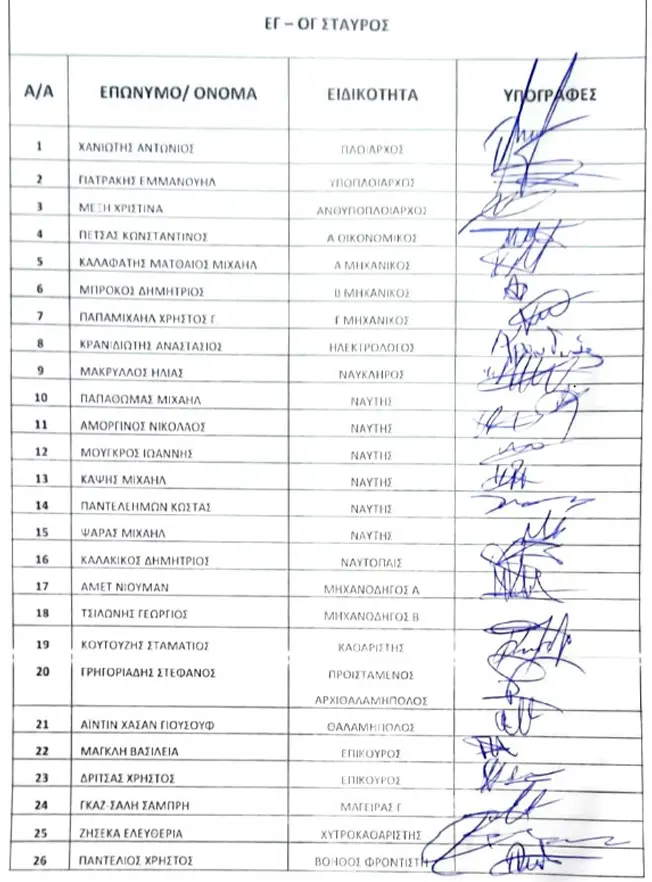 ΕΓ – ΟΓ ΣΤΑΥΡΟΣ
Α/Α ΕΠΩΝΥΜΟ/ ΟΝΟΜΑ ΕΙΔΙΚΟΤΗΤΑ ΥΠΟΓΡΑΦΕΣ
1 ΧΑΝΙΩΤΗΣ ΑΝΤΩΝΙΟΣ ΠΛΟΙΑΡΧΟΣ
2 ΓΙΑΤΡΑΚΗΣ ΕΜΜΑΝΟΥΗΛ ΥΠΟΠΛΟΙΑΡΧΟΣ
3 ΜΕΞΗ ΧΡΙΣΤΙΝΑ ΑΝΘΥΠΟΠΛΟΙΑΡΧΟΣ
4 ΠΕΤΣΑΣ ΚΩΝΣΤΑΝΤΙΝΟΣ Α ΟΙΚΟΝΟΜΙΚΟΣ
5 ΚΑΛΑΦΑΤΗΣ ΜΑΤΘΑΙΟΣ ΜΙΧΑΗΛ Α ΜΗΧΑΝΙΚΟΣ
6 ΜΠΡΟΚΟΣ ΔΗΜΗΤΡΙΟΣ Β ΜΗΧΑΝΙΚΟΣ
7 ΠΑΠΑΜΙΧΑΗΛ ΧΡΗΣΤΟΣ Γ. Γ ΜΗΧΑΝΙΚΟΣ
8 ΚΡΑΝΙΔΙΩΤΗΣ ΑΝΑΣΤΑΣΙΟΣ ΗΛΕΚΤΡΟΛΟΓΟΣ
9 ΜΑΚΡΥΛΛΟΣ ΗΛΙΑΣ ΝΑΥΚΛΗΡΟΣ
10 ΠΑΠΑΘΩΜΑΣ ΜΙΧΑΗΛ ΝΑΥΤΗΣ
11 ΑΜΟΡΓΙΝΟΣ ΝΙΚΟΛΑΟΣ ΝΑΥΤΗΣ
12 ΜΟΥΓΚΡΟΣ ΙΩΑΝΝΗΣ ΝΑΥΤΗΣ
13 ΚΑΨΗΣ ΜΙΧΑΗΛ ΝΑΥΤΗΣ
14 ΠΑΝΤΕΛΕΗΜΩΝ ΚΩΣΤΑΣ ΝΑΥΤΗΣ
15 ΨΑΡΑΣ ΜΙΧΑΗΛ ΝΑΥΤΗΣ
16 ΚΑΛΑΚΙΚΟΣ ΔΗΜΗΤΡΙΟΣ ΝΑΥΤΟΠΑΙΣ
17 ΑΜΕΤ ΝΙΟΥΜΑΝ ΜΗΧΑΝΟΔΗΓΟΣ Α
18 ΤΣΙΛΩΝΗΣ ΓΕΩΡΓΙΟΣ ΜΗΧΑΝΟΔΗΓΟΣ Β
19 ΚΟΥΤΟΥΖΗΣ ΣΤΑΜΑΤΙΟΣ ΚΑΘΑΡΙΣΤΗΣ
20 ΓΡΗΓΟΡΙΑΔΗΣ ΣΤΕΦΑΝΟΣ ΠΡΟΙΣΤΑΜΕΝΟΣ
ΑΡΧΙΘΑΛΑΜΗΠΟΛΟΣ
21 ΑΙΝΤΙΝ ΧΑΣΑΝ ΓΙΟΥΣΟΥΦ ΘΑΛΑΜΗΠΟΛΟΣ
22 ΜΑΓΚΛΗ ΒΑΣΙΛΕΙΑ ΕΠΙΚΟΥΡΟΣ
23 ΔΡΙΤΣΑΣ ΧΡΗΣΤΟΣ ΕΠΙΚΟΥΡΟΣ
24 ΓΚΑΖ-ΣΑΛΗ ΣΑΜΠΡΗ ΜΑΓΕΙΡΑΣ Γ
25 ΖΗΣΕΚΑ ΕΛΕΥΘΕΡΙΑ ΧΥΤΡΟΚΑΘΑΡΙΣΤΗΣ
26 ΠΑΝΤΕΛΙΟΣ ΧΡΗΣΤΟΣ ΒΟΗΘΟΣ ΦΡΟΝΤΙΣΤΗ